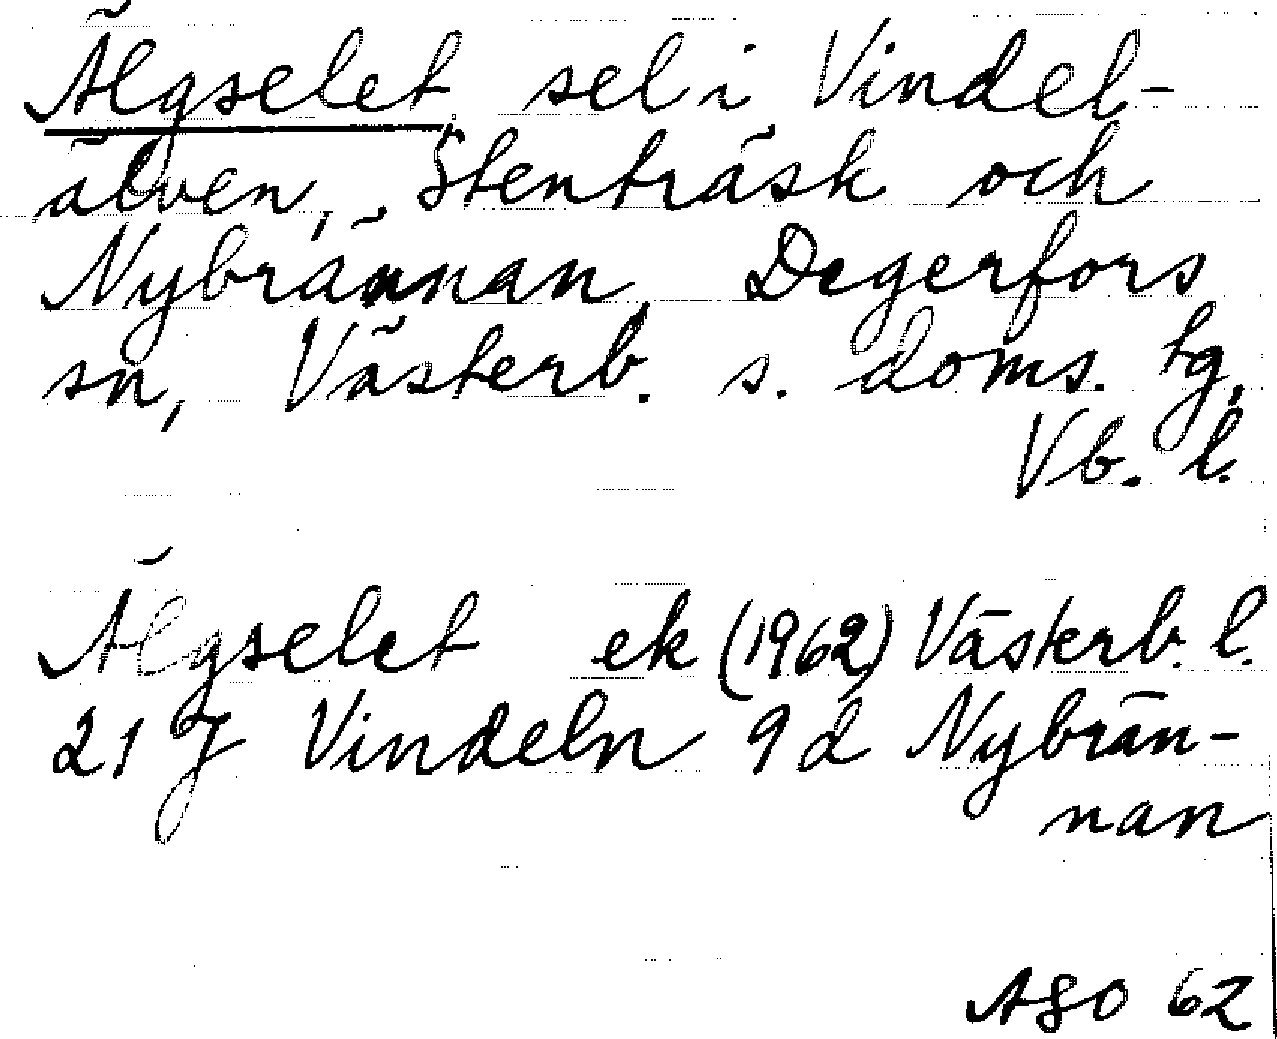 Älgselet, sel i Vindel-
älven, Stenträsk och
Nybrännan, Degerfors
sn, Västerb. s. doms. tg,
Vb. l.
Älgselet ek (1962) Västerb. l.
21 J Vindeln 9 d Nybrän-
nan
ASO 62